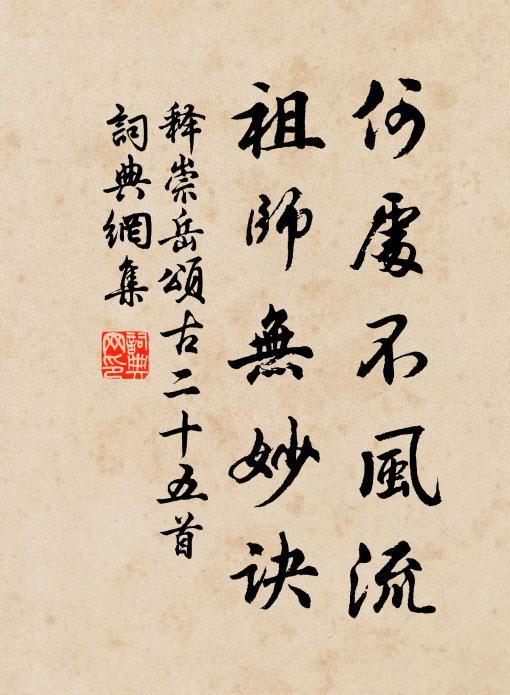 何處不風流
祖師無妙诀
释崇岳頌古二十五首
詞典網集
詞典网印